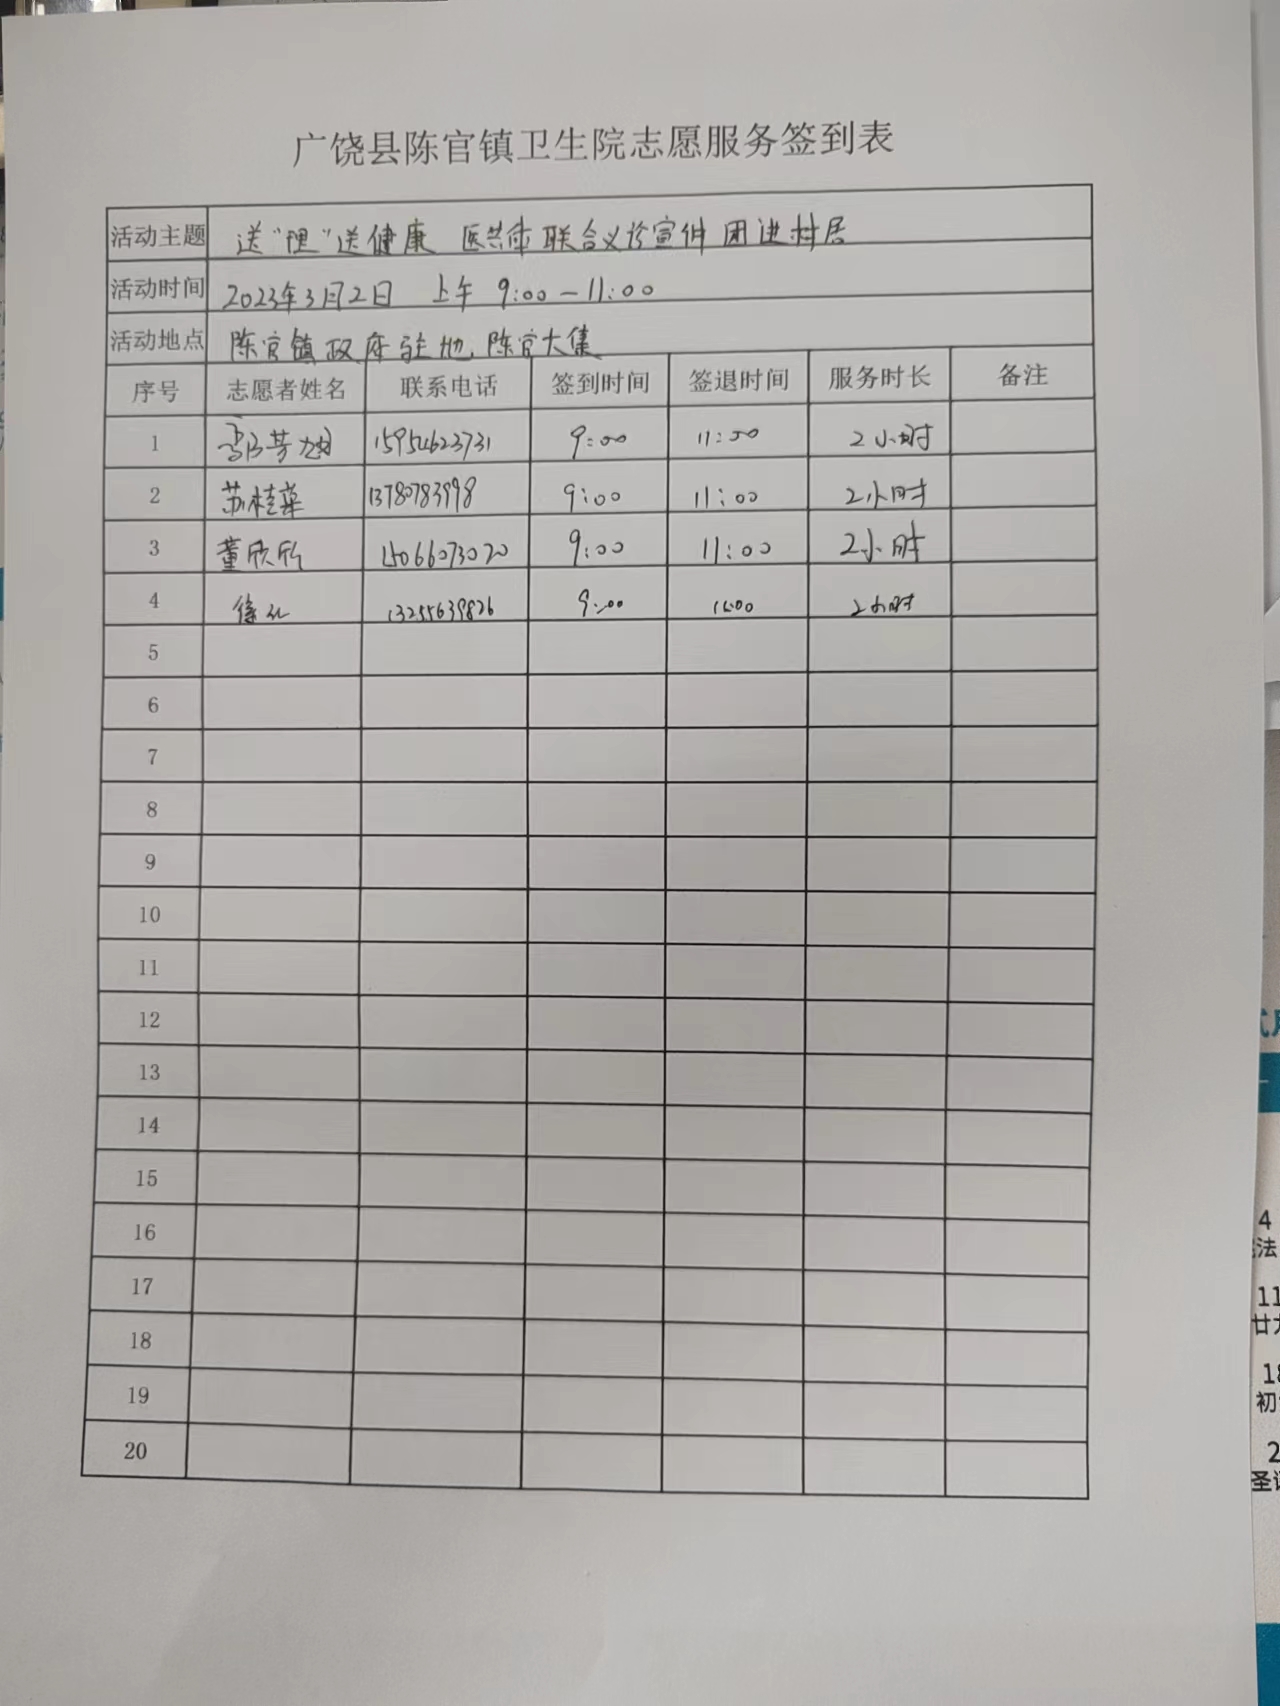 广饶县陈官镇卫生院志愿服务签到表
活动主题 送"理"送健康 医共体联合义诊宣传团进村居
活动时间 2023年3月2日 上午 9:00-11:00
活动地点 陈官镇政府驻地、陈官大集
序号 志愿者姓名 联系电话 签到时间 签退时间 服务时长 备注
1 15954623731 9:00 11:00 2小时
2 苏桂菜 13780783998 9:00 11:00 2小时
3 董欣欣 15066073020 9:00 11:00 2小时
4 徐 13255639826 9:00 11:00 2小时
5
6
7
8
9
10
11
12
13
14
15
16
17
18
19
20
4
法
11
廿
18
初
2
圣